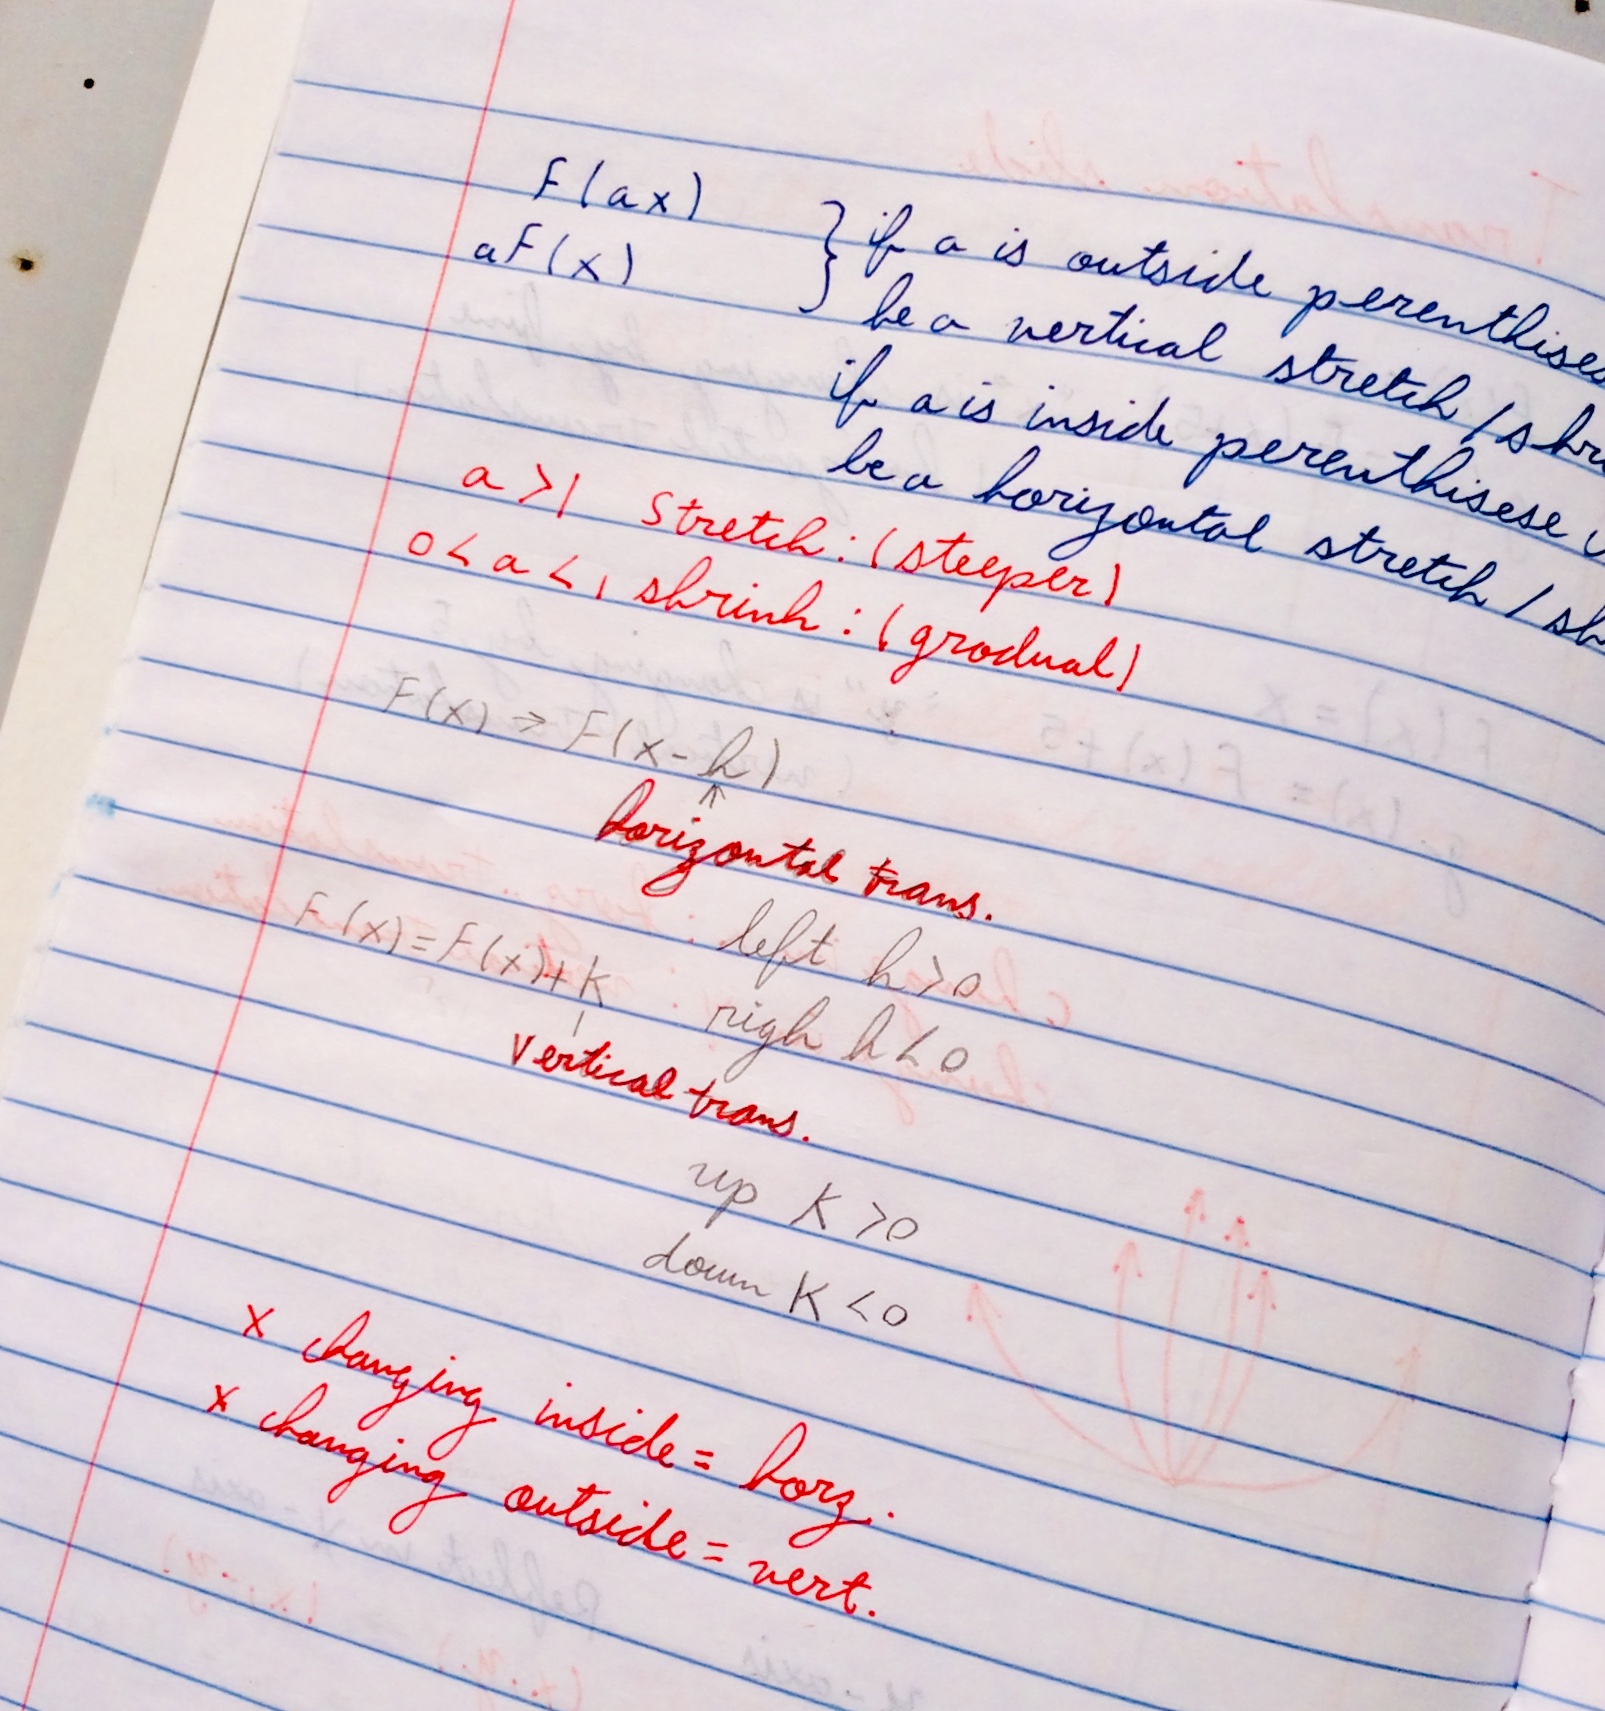 F(ax)
aF(x)
} if a is outside perenthises
be a vertical stretch / shr
if a is inside perenthisese
be a horizontal stretch / sh
a >1 Stretch : (steeper)
0 < a < 1 shrink : (gradual)
F(x) → F(x-h)
↑
horizontal trans.
left h>0
righ h<0
F(x)=F(x)+K
vertical trans.
up K >0
down K <0
x changing inside = horz.
x changing outside = vert.